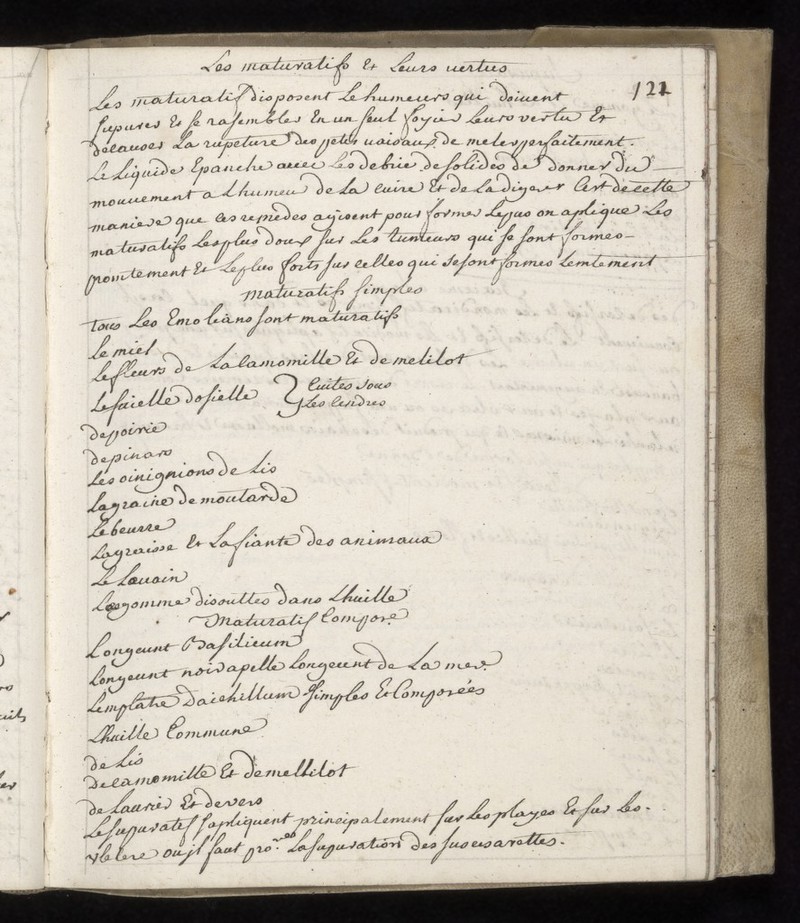 Les maturatifs Et Leurs vertus
122
Les maturatif disposent Le humeurs qui doivent
supurer Et se rasembler En un seul foyier Leurs vertu Et
de causer La rupeture des petits vaisaux de meler perfaitement.
Le Liquide Epanche avec Les debrie de solides de donner du
mouvement a Lhumeu de La cuire Et de La digerer Cest de cette
maniere que ces remedes agisent pour former Le pus on aplique Les
maturatifs Les plus doux sur Les tumeurs qui se sont formes
promtement Et Le plus forts sur celles qui se sont formes Lentement
maturatifs simples
tous Les Emolians sont maturatifs
Le miel
Le fleurs de La Camomille Et de melilot
Le faielle dosielle } Cuites sous
Les Cendres
de poirie
depinars
Les oinignions de Lis
La graine de moutarde
Le beurre
La graisse Et La fiante des animaux
Le Levain
Les gomme disoultes dans Lhuille
Maturatif Compose
Longeunt Basilicum
Longeunt noir apelle Longeunt de La mer
Lemplatre Daichillum simples Et Composées
Lhuille Commune
de Lis
De camomille Et de mellilot
de Laurier Et de vers
Le supuratif sapliquent principalement sur Les playes Et sur Les
vlcere ou il faut La supuration des sucs arettes.